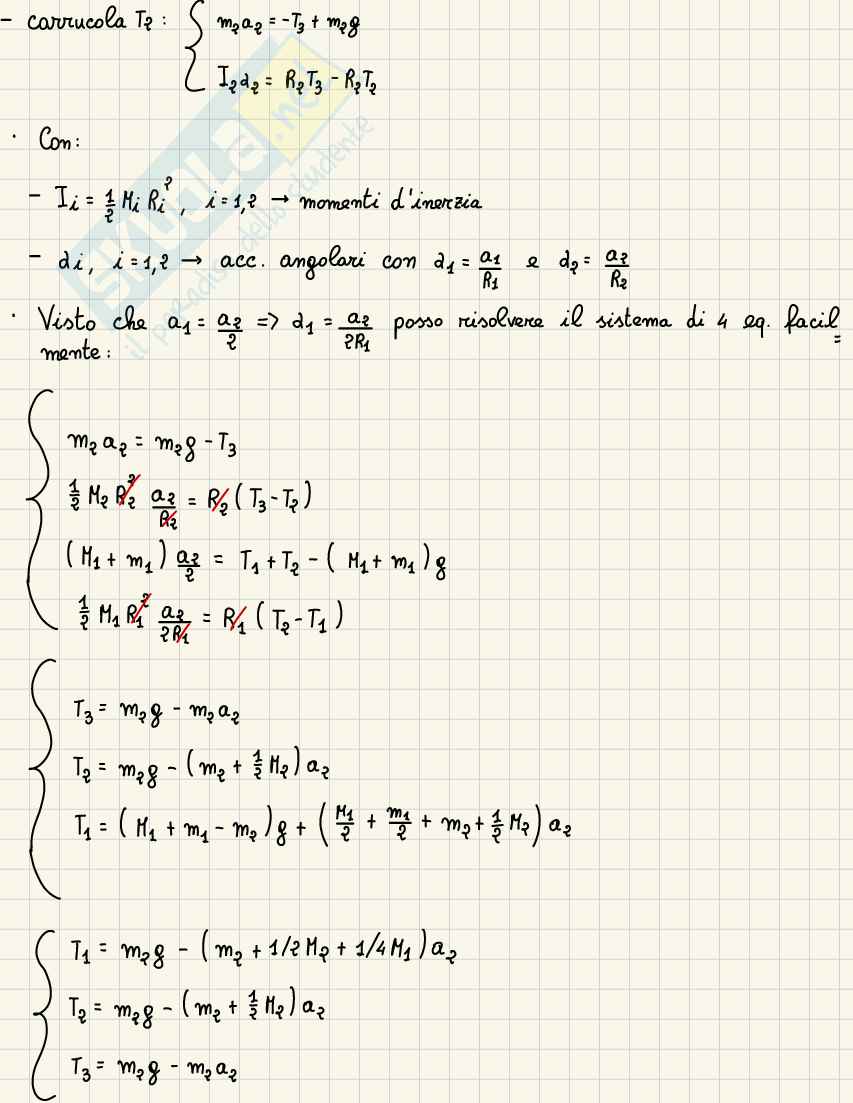 - carrucola T2 : { m₂a₂ = -T₃ + m₂g
I₂α₂ = R₂T₃ - R₂T₂
· Con:
- Iᵢ = 1/2 Mᵢ Rᵢ² , i = 1,2 → momenti d'inerzia
- αᵢ, i = 1,2 → acc. angolari con α₁ = a₁/R₁ e α₂ = a₂/R₂
· Visto che a₁ = a₂/2 => α₁ = a₂/2R₁ posso risolvere il sistema di 4 eq. facil=
mente:
m₂a₂ = m₂g - T₃
1/2 M₂ R₂² a₂/R₂ = R₂ (T₃ - T₂)
(M₁ + m₁) a₂/2 = T₁ + T₂ - (M₁ + m₁)g
1/2 M₁ R₁² a₂/2R₁ = R₁ (T₂ - T₁)
T₃ = m₂g - m₂a₂
T₂ = m₂g - (m₂ + 1/2 M₂) a₂
T₁ = (M₁ + m₁ - m₂)g + (M₁/2 + m₁/2 + m₂ + 1/2 M₂) a₂
T₁ = m₂g - (m₂ + 1/2 M₂ + 1/4 M₁) a₂
T₂ = m₂g - (m₂ + 1/2 M₂) a₂
T₃ = m₂g - m₂a₂
SKUOLA.net
il paradiso dello studente